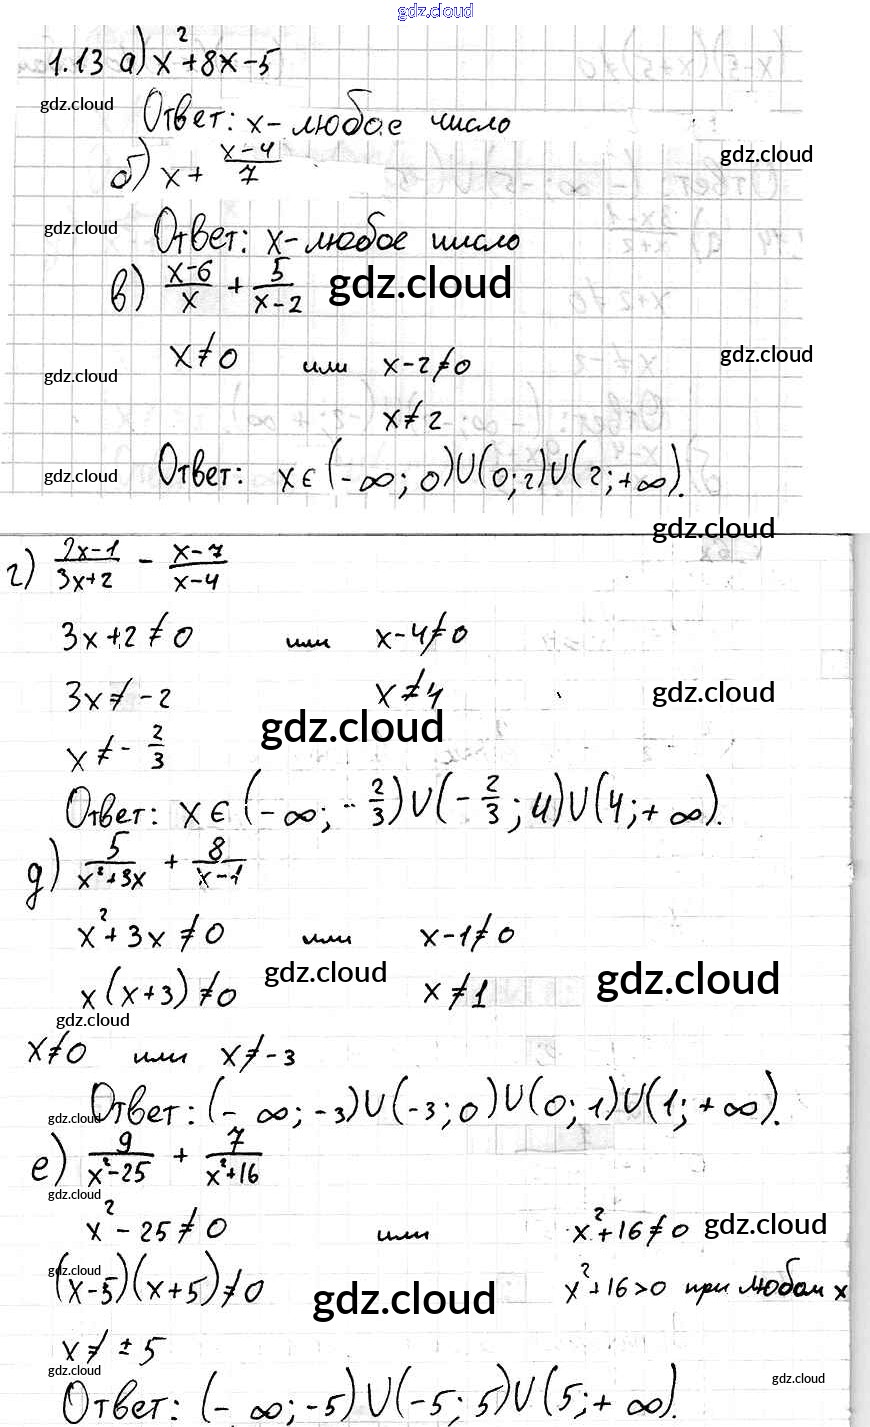 gdz.cloud
1.13 а) x²+8x-5
gdz.cloud
Ответ: x-любое число
б) x+ (x-4)/7
gdz.cloud
gdz.cloud
Ответ: x-любое число
в) (x-6)/x + 5/(x-2)
gdz.cloud
x≠0 или x-2≠0
gdz.cloud
gdz.cloud
x≠2
gdz.cloud
Ответ: x∈(-∞; 0)∪(0;2)∪(2;+∞).
gdz.cloud
г) (2x-1)/(3x+2) - (x-7)/(x-4)
3x+2≠0 или x-4≠0
3x≠-2 x≠4
gdz.cloud
gdz.cloud
x≠- 2/3
Ответ: x∈(-∞; -2/3)∪(-2/3; 4)∪(4;+∞).
д) 5/(x²+3x) + 8/(x-1)
x²+3x≠0 или x-1≠0
gdz.cloud
gdz.cloud
x(x+3)≠0 x≠1
gdz.cloud
x≠0 или x≠-3
Ответ: (-∞;-3)∪(-3;0)∪(0;1)∪(1;+∞).
gdz.cloud
е) 9/(x²-25) + 7/(x²+16)
gdz.cloud
x²-25≠0 или x²+16≠0
gdz.cloud
gdz.cloud
(x-5)(x+5)≠0 x²+16>0 при любом x
gdz.cloud
x≠±5
gdz.cloud
gdz.cloud
Ответ: (-∞;-5)∪(-5;5)∪(5;+∞).